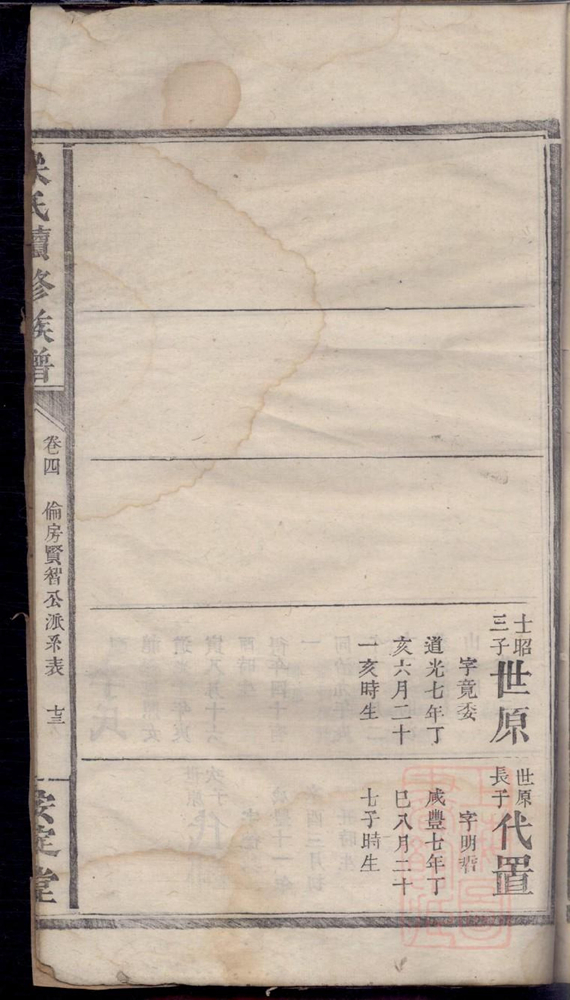 士昭
三子
世原
字竟委
道光七年丁
亥六月二十
一亥時生
世原
長子
代置
字明
咸豐七年丁
巳八月二十
七子時生
氏續修族譜
卷四 倫房賢智公派系表 十三
安定堂